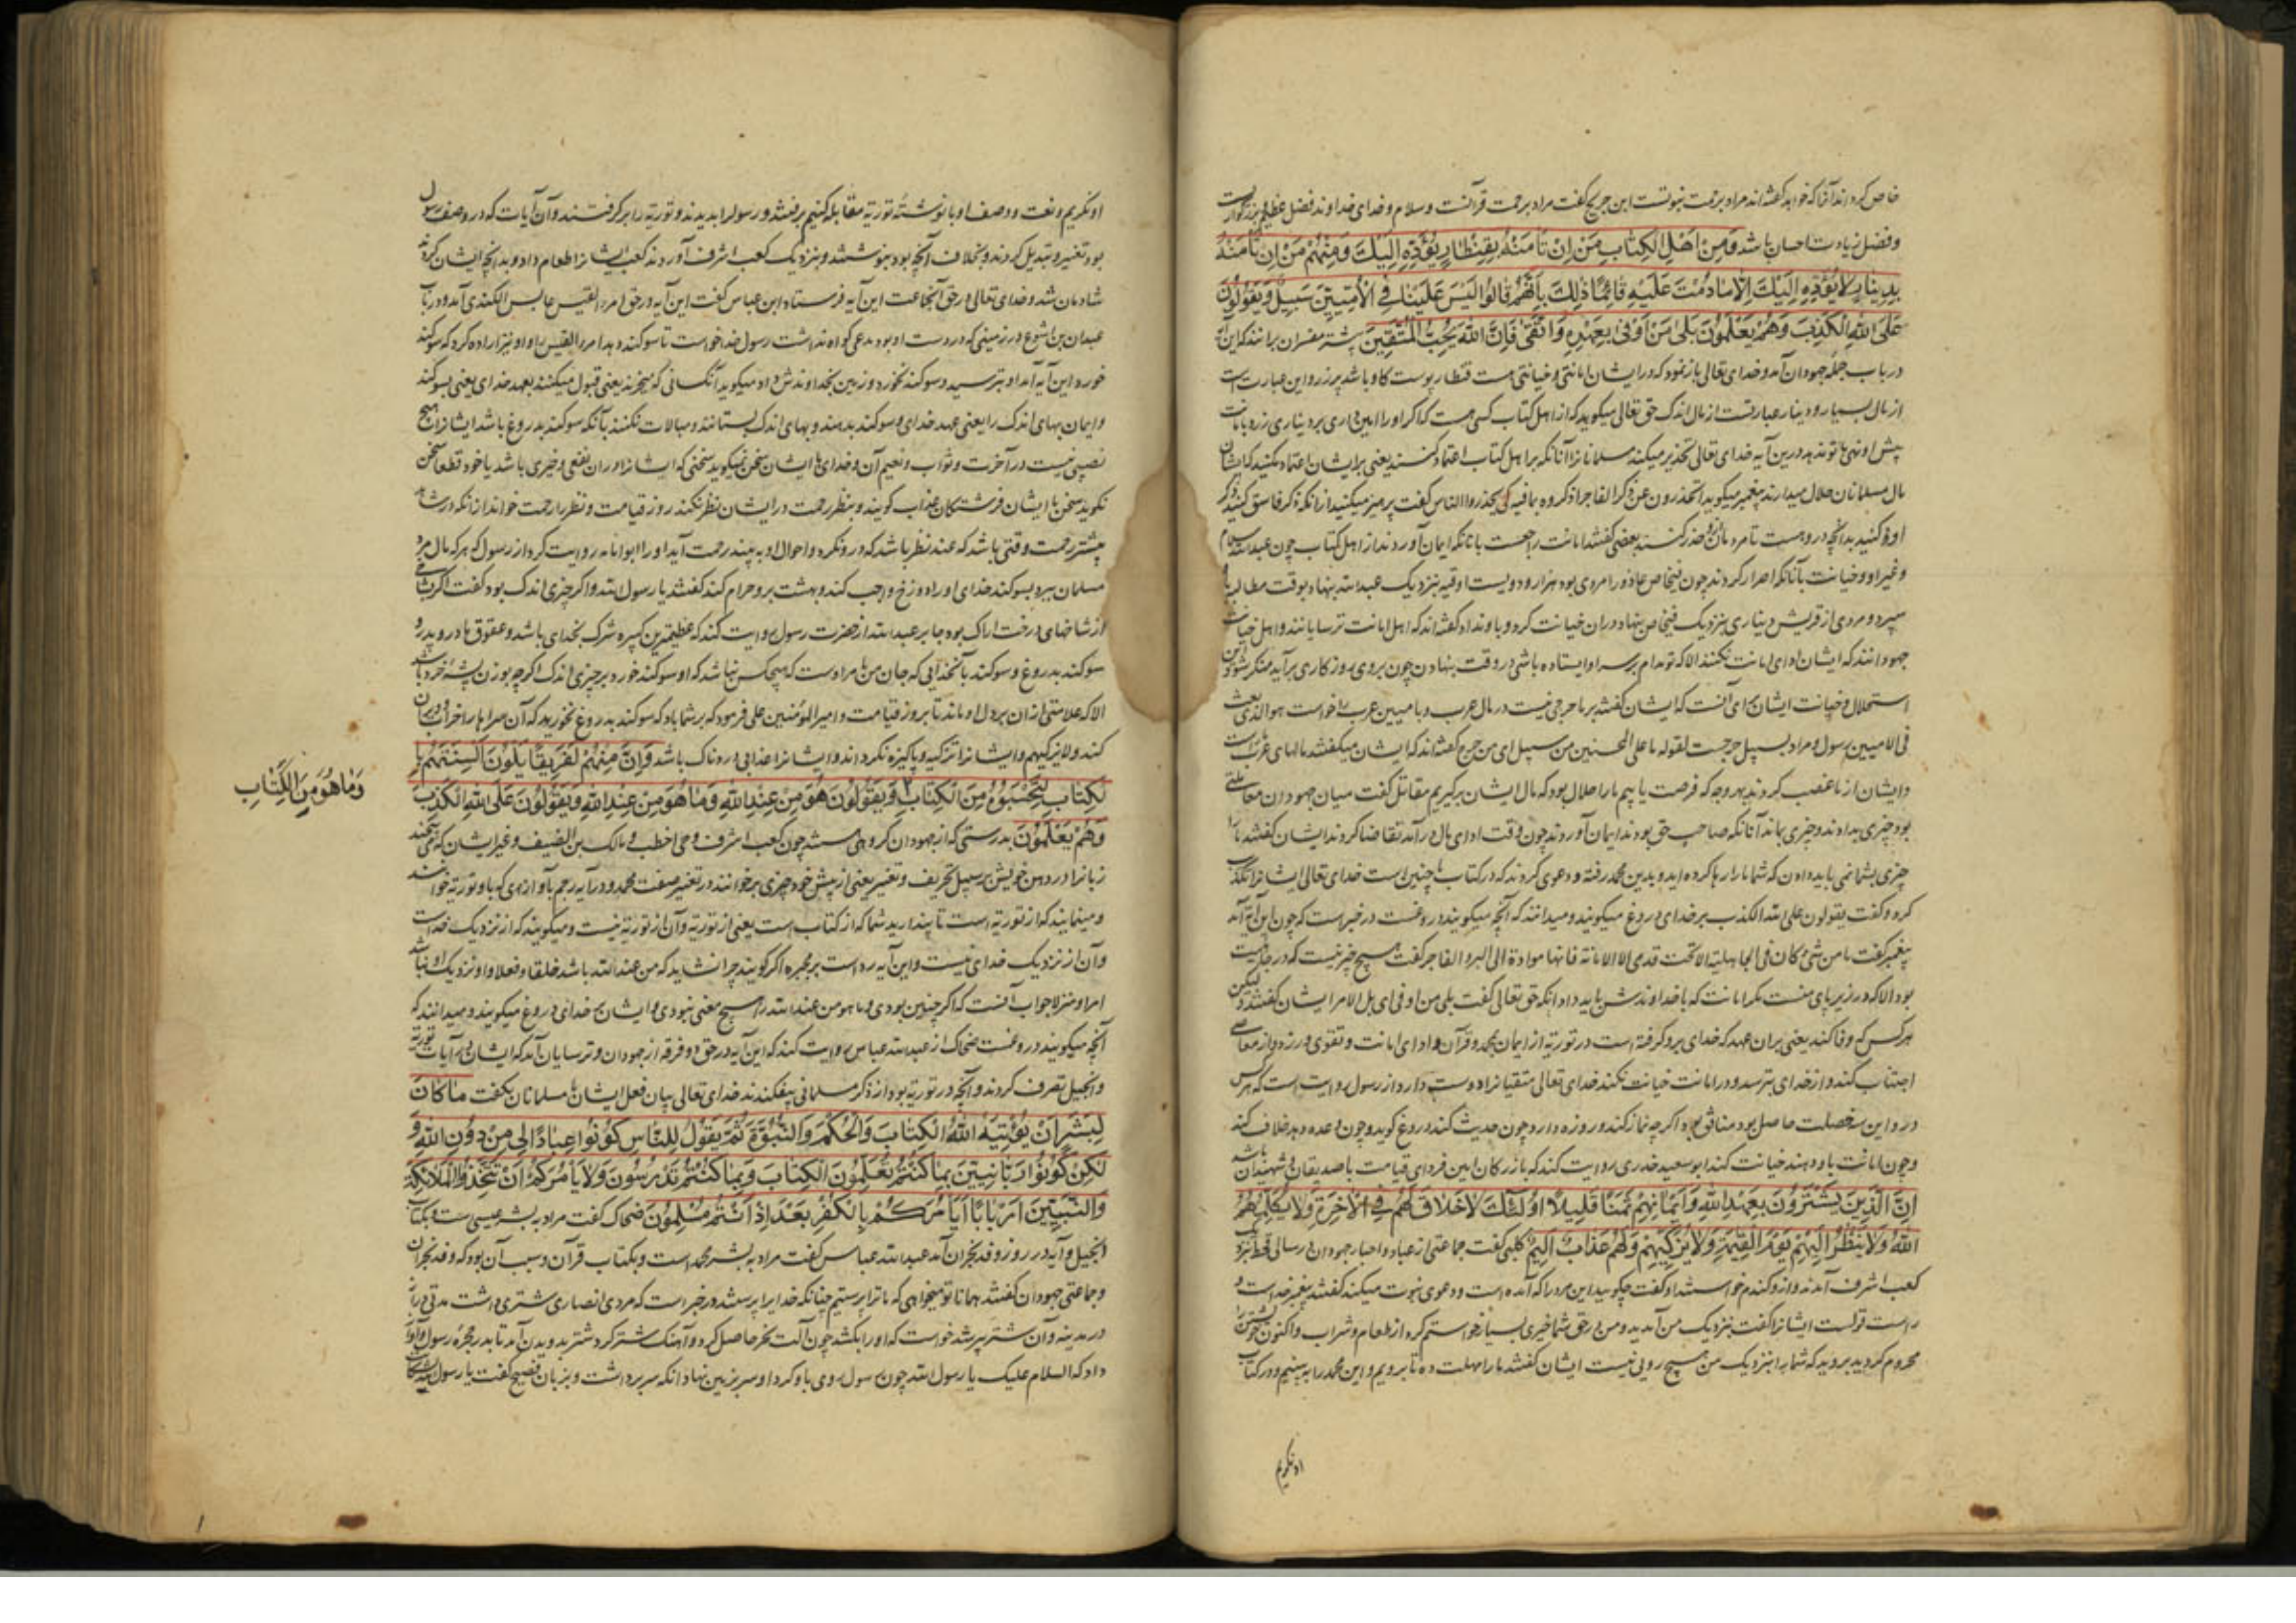 خاص کرد اند آنرا که خواهد گفته‌اند مراد برحمت نبوتست ابن جریج گفت مراد برحمت قرآنست و سلام و خدای خداوند فضل عظیم
و فضل زیادت احسان باشد وَمِنْ اَهْلِ الْكِتَابِ مَنْ اِنْ تَأْمَنْهُ بِقِنْطَارٍ يُؤَدِّهِ اِلَيْكَ وَمِنْهُمْ مَنْ اِنْ تَأْمَنْهُ
بِدِينَارٍ لَا يُؤَدِّهِ اِلَيْكَ اِلَّا مَا دُمْتَ عَلَيْهِ قَائِمًا ذَلِكَ بِاَنَّهُمْ قَالُوا لَيْسَ عَلَيْنَا فِي الْاُمِّيِّينَ سَبِيلٌ وَيَقُولُونَ
عَلَى اللهِ الْكَذِبَ وَهُمْ يَعْلَمُونَ بَلَى مَنْ اَوْفَى بِعَهْدِهِ وَاتَّقَى فَاِنَّ اللهَ يُحِبُّ الْمُتَّقِينَ بیشتر مفسران برانند که این آیه
در باب جمله جهودان آمد و خدای تعالی باز نمود که در ایشان امانتی و خیانتی هست قنطار پوست گاو باشد پر زر و این عبارت است
از مال بسیار و دینار عبارتست از مال اندک حق تعالی میگوید که از اهل کتاب کسی هست که اگر او را امین داری بر دیناری زر و بامانت
پیش او نهی با تو ندهد درین آیه خدای تعالی تحذیر میکند مسلمانانرا آنانکه بر اهل کتاب اعتماد کنند یعنی بر ایشان اعتماد مکنید که ایشان
مال مسلمانان حلال میدارند پیغمبر میگوید اتحذرون عن ذکر الفاجر اذکروه بما فیه کی یحذروا الناس گفت پرهیز میکنید از انکه ذکر فاسق کنید ذکر
او کنید بدانچه در و هست تا مردمان حذر کنند بعضی گفتند امانت راجعست با آنانکه ایمان آوردند از اهل کتاب چون عبدالله سلام
و غیر او و خیانت با آنانکه اصرار کردند چون فنحاص عاذورا مردی بود هزار و دویست اوقیه نزدیک عبدالله بنهاد بوقت مطالبه با او
سپرد و مردی از قریش دیناری بنزدیک فنحاص بنهاد در ان خیانت کرد و باو نداد گفته‌اند که اهل امانت ترسایانند و اهل خیانت
جهودانند که ایشان ادای امانت نکنند الا که تو مدام بر سر او ایستاده باشی در وقت بنهادن چون بروی روزگاری برآید منکر شود
استحلال و خیانت ایشان برای آنست که ایشان گفتند بر ما حرجی نیست در مال عرب و بامیین عرب خواست هو الذی بعث
فی الامیین رسولا و مراد بسبیل حرجست لقوله ما علی المحسنین من سبیل ای من حرج گفته‌اند که ایشان میگفتند مالهای عرب
و ایشان از ما غصب کردند بهر وجه که فرصت یابیم ما را حلال بود که مال ایشان برگیریم مقاتل گفت میان جهودان معاملتی
بود چیزی بدادند و چیزی بماند آنانکه صاحب حق بودند ایمان آوردند چون وقت ادای مال درآمد تقاضا کردند ایشان گفتند ما را
چیزی بشما نمی باید دادن که شما ما را رها کرده اید و بدین محمد رفته و دعوی کردند که در کتاب ما چنین است خدای تعالی ایشانرا تکذیب
کرد و گفت یقولون علی الله الکذب بر خدای دروغ میگویند و میدانند که آنچه میگویند دروغست در خبر است که چون این آیه آمد
پیغمبر گفت ما من شیء کان فی الجاهلیة الا تحت قدمی الا الامانة فانها موداة الی البر و الفاجر گفت هیچ چیز نیست که در جاهلیت
بود الا که در زیر پای منست مگر امانت که با خداوندش باید داد انکه حق تعالی گفت بلی من اوفی ای بل الامر ایشان گفتند و لیکن
هر کس که وفا کند یعنی بران عهد که خدای برو گرفته است در توریة از ایمان بمحمد و قرآن و ادای امانت و تقوی ورزد و از معاصی
اجتناب کند و از خدای بترسد و در امانت خیانت نکند خدای تعالی متقیانرا دوست دارد و از رسول روایت است که هر کس
درو این سه خصلت حاصل بود منافق بود اگر چه نماز کند و روزه دارد چون حدیث کند دروغ گوید و چون وعده دهد خلاف کند
و چون امانت باو دهند خیانت کند ابو سعید خدری روایت کند که بازرگان امین فردای قیامت با صدیقان و شهیدان باشد
اِنَّ الَّذِينَ يَشْتَرُونَ بِعَهْدِ اللهِ وَاَيْمَانِهِمْ ثَمَنًا قَلِيلًا اُولَئِكَ لَا خَلَاقَ لَهُمْ فِي الْاٰخِرَةِ وَلَا يُكَلِّمُهُمُ
اللهُ وَلَا يَنْظُرُ اِلَيْهِمْ يَوْمَ الْقِيٰمَةِ وَلَا يُزَكِّيهِمْ وَلَهُمْ عَذَابٌ اَلِيمٌ کلبی گفت جماعتی از عباد و احبار جهودان در سالی قحط بنزدیک
کعب اشرف آمدند و ازو گندم خواستند او گفت چگونید این مرد را که آمده است و دعوی نبوت میکند گفتند پیغمبر خداست و
راست گوست ایشانرا گفت بنزدیک من آمدید و من در حق شما خیری بسیار خواستم کرد از طعام و شراب و اکنون خویشتن را
محروم کردید بروید که شما را بنزدیک من هیچ رویی نیست ایشان گفتند ما را مهلت ده تا برویم و این محمد را ببینیم و در کتاب
او نگریم
او نگریم و نعت و وصف او با نوشتهٔ توریة مقابله کنیم برفتند و رسول را بدیدند و توریة را برگرفتند و آن آیات که در وصف رسول
بود تغییر و تبدیل کردند و بخلاف آنچه بود بنوشتند و بنزدیک کعب اشرف آوردند کعب ایشانرا طعام داد و بدانچه ایشان کردند
شادمان شد و خدای تعالی در حق آنجماعت این آیه فرستاد ابن عباس گفت این آیه در حق امرء القیس عابس الکندی آمد و در باب
عبدان بن اشوع در زمینی که در دست او بود مدعی گواه نداشت رسول خدا خواست تا سوگند دهد امرء القیس را و او نیز اراده کرد که سوگند
خورد این آیه آمد او بترسید و سوگند نخورد و زمین بخداوندش داد میگوید آنکسانی که میخرند یعنی قبول میکنند بعهد خدای یعنی بسوگند
و ایمان بهای اندک را یعنی عهد خدای و سوگند بدهند و بهای اندک بستانند و مبالات نکنند بآنکه سوگند بدروغ باشد ایشانرا هیچ
نصیبی نیست در آخرت و ثواب و نعیم آن و خدای با ایشان سخن نمیگوید سخنی که ایشانرا در ان نفعی و خیری باشد یا خود قطعا سخن
نگوید سخن با ایشان فرشتگان عذاب گویند و بنظر رحمت در ایشان نظر نکند روز قیامت و نظر را رحمت خواند از انکه در شاهد
بیشتر رحمت وقتی باشد که عند نظر باشد که درو نگرد و احوال او به بیند رحمت آید او را ابو امامه روایت کرد از رسول که هر که مال مرد
مسلمان ببرد بسوگند خدای او را دوزخ واجب کند و بهشت برو حرام کند گفتند یا رسول الله و اگر چیزی اندک بود گفت اگر شاخی
از شاخهای درخت اراک بود جابر عبدالله از حضرت رسول روایت کند که عظیمترین کبیره شرک بخدای باشد و عقوق مادر و پدر و
سوگند بدروغ و سوگند بآنخدایی که جان من بامر اوست که هیچکس نباشد که او سوگند خورد بر چیزی اندک اگر چه بوزن پشه خرد باشد
الا که علامتی از ان بر دل او ماند تا بروز قیامت و امیر المؤمنین علی فرمود که بر شما باد که سوگند بدروغ نخورید که آن سراها را خراب و ویران
کند ولا یزکیهم و ایشانرا تزکیه و پاکیزه نگرداند و ایشانرا عذابی دردناک باشد وَاِنَّ مِنْهُمْ لَفَرِيقًا يَلْوُنَ اَلْسِنَتَهُمْ بِا
لْكِتَابِ لِتَحْسَبُوهُ مِنَ الْكِتَابِ وَيَقُولُونَ هُوَ مِنْ عِنْدِ اللهِ وَمَا هُوَ مِنْ عِنْدِ اللهِ وَيَقُولُونَ عَلَى اللهِ الْكَذِبَ
وَمَا هُوَ مِنَ الْكِتَابِ
وَهُمْ يَعْلَمُونَ بدرستی که از جهودان گروهی هستند چون کعب اشرف و حی اخطب و مالک بن الضیف و غیر ایشان که می پیچند
زبانرا در دهن خویش بر سبیل تحریف و تغییر یعنی از پیش خود چیزی برخوانند در تغییر صفت محمد و در آیه رجم بآوازی که باو توریة خوانند
و مینمایند که از توریة است تا پندارید شما که از کتاب است یعنی از توریة و آن از توریة نیست و میگویند که از نزدیک خداست
و آن از نزدیک خدای نیست و این آیه رد است بر مجبره اگر گویند چرا نشاید که من عند الله باشد خلقا و فعلا و از نزدیک او نباشد
امرا و منزلا جواب آنست که اگر چنین بودی و ما هو من عند الله را هیچ معنی نبودی و ایشان بر خدای دروغ میگویند و میدانند که
آنچه میگویند دروغست ضحاک از عبدالله عباس روایت کند که این آیه در حق دو فرقه از جهودان و ترسایان آمد که ایشان در آیات توریة
و انجیل تصرف کردند و آنچه در توریة بود از ذکر مسلمانی بیفکندند خدای تعالی بیان فعل ایشان با مسلمانان بگفت مَا كَانَ
لِبَشَرٍ اَنْ يُؤْتِيَهُ اللهُ الْكِتَابَ وَالْحُكْمَ وَالنُّبُوَّةَ ثُمَّ يَقُولَ لِلنَّاسِ كُونُوا عِبَادًا لِي مِنْ دُونِ اللهِ وَ
لَكِنْ كُونُوا رَبَّانِيِّينَ بِمَا كُنْتُمْ تُعَلِّمُونَ الْكِتَابَ وَبِمَا كُنْتُمْ تَدْرُسُونَ وَلَا يَأْمُرَكُمْ اَنْ تَتَّخِذُوا الْمَلَائِكَةَ
وَالنَّبِيِّينَ اَرْبَابًا اَيَأْمُرُكُمْ بِالْكُفْرِ بَعْدَ اِذْ اَنْتُمْ مُسْلِمُونَ ضحاک گفت مراد به بشر عیسی است و بکتاب
انجیل و آیه در روز وفد نجران آمد عبدالله عباس گفت مراد به بشر محمد است و بکتاب قرآن و سبب آن بود که وفد نجران
و جماعتی جهودان گفتند همانا تو میخواهی که ما ترا پرستیم چنانکه خدایرا پرستند در خبر است که مردی انصاری شتری داشت مدتی دراز
در مدینه و آن شتر پیر شد خواست که او را بکشد چون آلت نحر حاصل کرد و آهنگ شتر کرد شتر بدویدن آمد تا بدر حجره رسول و آواز
داد که السلام علیک یا رسول الله چون رسول روی باو کرد او سر بزمین نهاد انکه سر برداشت و بزبان فصیح گفت یا رسول الله